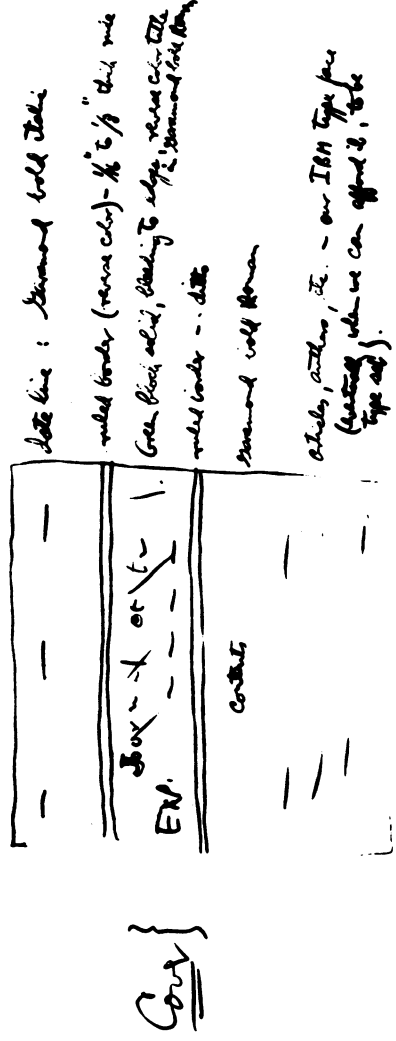 Cover }
date line : Garamond bold italic
ruled border (reverse color) - 1/16" to 1/8" thick rule
Green block solid, bleeding to edge, reverse color title
in Garamond bold Roman
ruled border - ditto
Garamond bold Roman
articles, authors, etc. - our IBM type face
(eventually when we can afford it, to be
type set).
Jour
EXP.
Contents